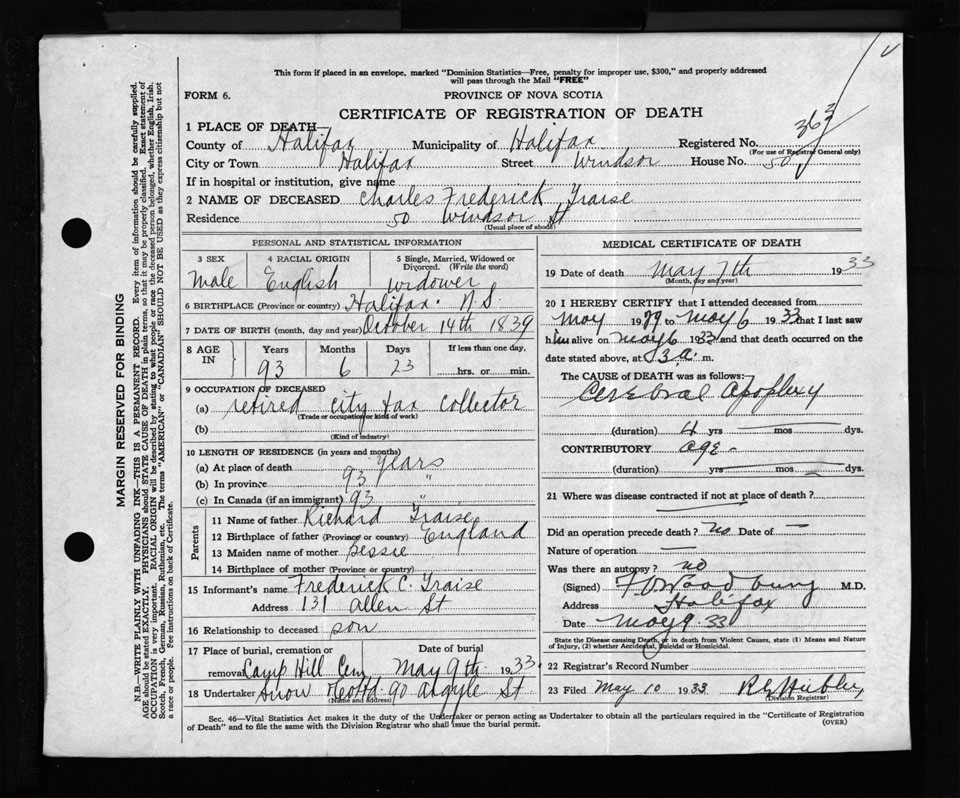 This form if placed in an envelope, marked "Dominion Statistics—Free, penalty for improper use, $300," and properly addressed
will pass through the Mail "FREE"
FORM 6.
PROVINCE OF NOVA SCOTIA
CERTIFICATE OF REGISTRATION OF DEATH
363
1 PLACE OF DEATH—
County of Halifax Municipality of Halifax Registered No.
(For use of Registrar General only)
City or Town Halifax Street Windsor House No. 50
If in hospital or institution, give name
2 NAME OF DECEASED Charles Frederick Traise
Residence 50 Windsor St
(Usual place of abode)
PERSONAL AND STATISTICAL INFORMATION
3 SEX 4 RACIAL ORIGIN 5 Single, Married, Widowed or
Divorced. (Write the word)
Male English widower
6 BIRTHPLACE (Province or country) Halifax N.S.
7 DATE OF BIRTH (month, day and year) October 14th 1839
8 AGE IN Years Months Days If less than one day,
93 6 23 hrs. or min.
9 OCCUPATION OF DECEASED
(a) retired city tax collector
(Trade or occupation or kind of work)
(b)
(Kind of industry)
10 LENGTH OF RESIDENCE (in years and months)
(a) At place of death 93 years
(b) In province "
(c) In Canada (if an immigrant) 93 "
Parents
11 Name of father Richard Traise
12 Birthplace of father (Province or country) England
13 Maiden name of mother Bessie
14 Birthplace of mother (Province or country)
15 Informant's name Frederick C. Traise
Address 131 Allen St
16 Relationship to deceased son
17 Place of burial, cremation or Date of burial
removal Camp Hill Cem May 9th 1933.
18 Undertaker Snow 90 Argyle St
(Name and address)
MEDICAL CERTIFICATE OF DEATH
19 Date of death May 7th 1933
(Month, day and year)
20 I HEREBY CERTIFY that I attended deceased from
May 1929 to May 6 1933 that I last saw
him alive on May 6 1933 and that death occurred on the
date stated above, at 3 a. m.
The CAUSE OF DEATH was as follows:
Cerebral Apoplexy
(duration) 4 yrs mos dys.
CONTRIBUTORY age
(duration) yrs mos dys.
21 Where was disease contracted if not at place of death?
Did an operation precede death? no Date of —
Nature of operation —
Was there an autopsy? no
(Signed) Woodbury M.D.
Address Halifax
Date May 9. 33
State the Disease causing Death, or in death from Violent Causes, state (1) Means and Nature
of Injury, (2) whether Accidental, Suicidal or Homicidal.
22 Registrar's Record Number
23 Filed May 10 1933
Division Registrar
Sec. 46—Vital Statistics Act makes it the duty of the Undertaker or person acting as Undertaker to obtain all the particulars required in the "Certificate of Registration
of Death" and to file the same with the Division Registrar who shall issue the burial permit.
(OVER)
MARGIN RESERVED FOR BINDING
N.B.—WRITE PLAINLY WITH UNFADING INK—THIS IS A PERMANENT RECORD. Every item of information should be carefully supplied.
AGE should be stated EXACTLY. PHYSICIANS should STATE CAUSE OF DEATH in plain terms so that it may be properly classified. Exact statement of
OCCUPATION is very important. RACIAL ORIGIN will be described by stating to what people or race the deceased person belonged, whether English, Irish,
Scotch, French, German, Russian, Ruthenian, etc. The terms "AMERICAN" or "CANADIAN" SHOULD NOT BE USED as they express citizenship but not
a race or people. Fee instructions on back of Certificate.